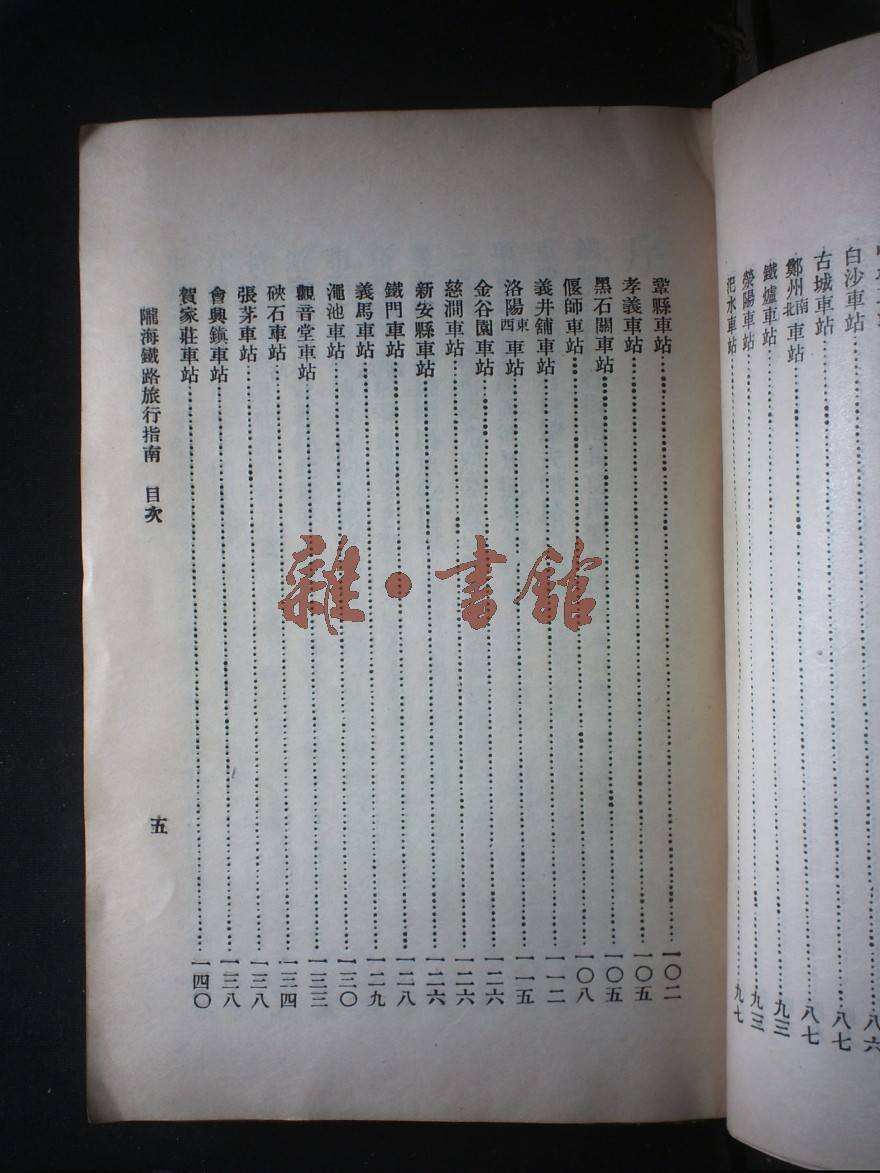 八六
白沙車站……八七
古城車站……八七
鄭州南北車站……九三
鐵爐車站……九三
滎陽車站……九七
汜水車站……
鞏縣車站……一〇二
孝義車站……一〇五
黑石關車站……一〇五
偃師車站……一〇八
義井舖車站……一一二
洛陽東西車站……一一五
金谷園車站……一二六
慈澗車站……一二六
新安縣車站……一二六
鐵門車站……一二八
義馬車站……一二九
澠池車站……一三〇
觀音堂車站……一三三
硤石車站……一三四
張茅車站……一三八
會興鎮車站……一三八
賀家莊車站……一四〇
隴海鐵路旅行指南 目次
五
雜·書館